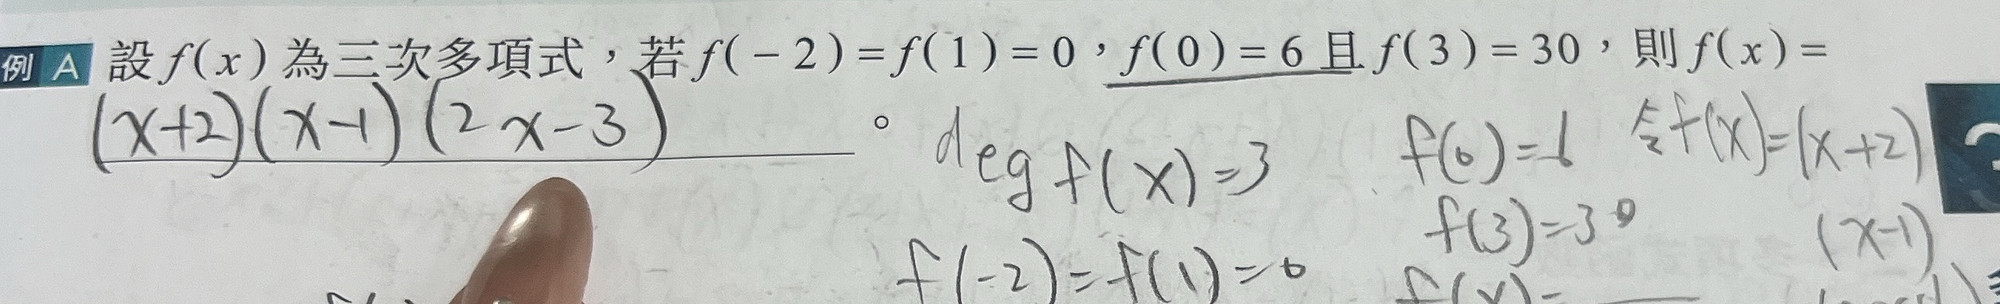 例 A 設 f(x) 為三次多項式，若 f(−2)=f(1)=0，f(0)=6 且 f(3)=30，則 f(x)=
(x+2)(x-1)(2x-3)。
deg f(x)=3
f(-2)=f(1)=0
f(0)=6
f(3)=30
f(x)=
令f(x)=(x+2)
(x-1)